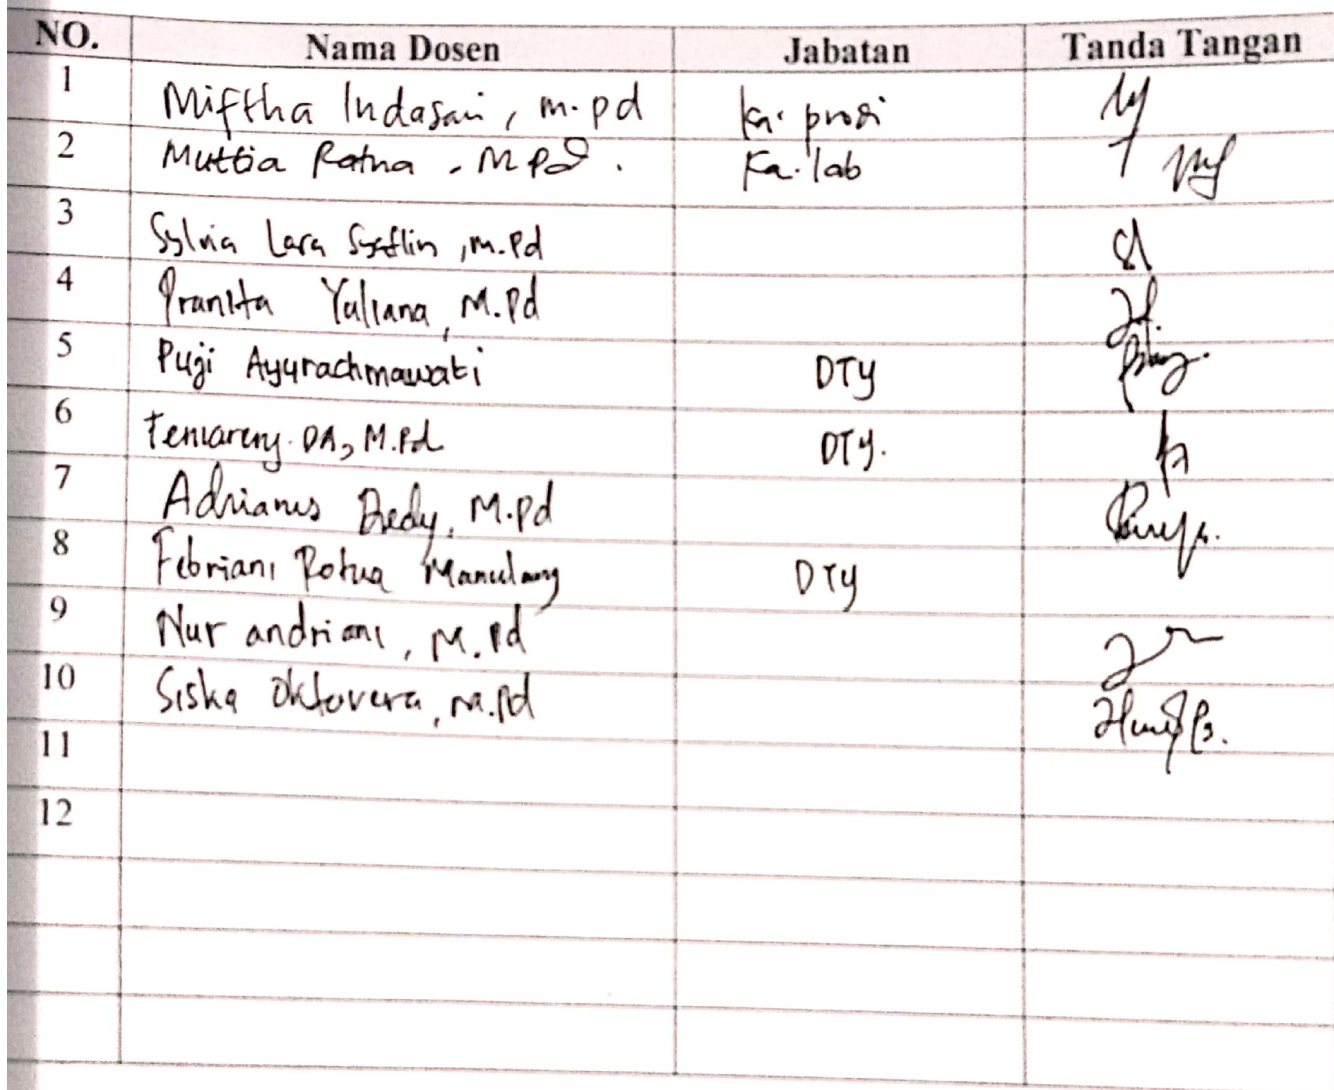 NO. Nama Dosen Jabatan Tanda Tangan
1 Miftha Indasari, M.pd Ka. prodi
2 Muttia Ratna, M.Pd. Ka. lab
3 Sylvia Lara Syaflin, M.Pd
4 Pranita Yuliana, M.Pd
5 Puji Ayurachmawati DTY
6 DA, M.Pd DTY.
7 Adrianus Dedy, M.Pd
8 Febriani Rotua Manulang DTY
9 Nur andriani, M.Pd
10 Siska Oktavera, M.Pd
11
12